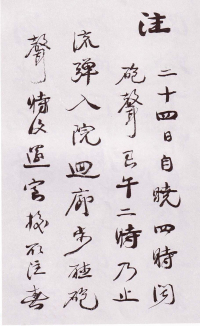 注
二十四日自曉四時聞
砲聲至午二時乃止
流彈入院迴廊步硾砲
聲時後還宮校不注書